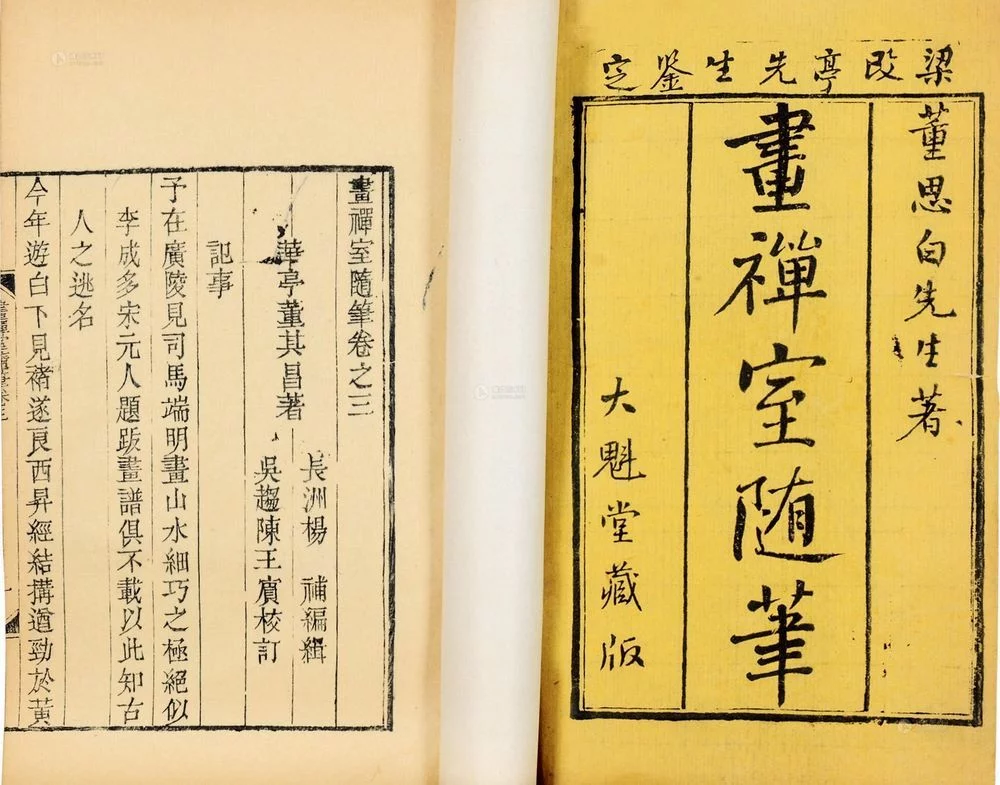 梁改亭先生鉴定
董思白先生著
畫禪室随筆
大魁堂藏版
畫禪室隨筆卷之三
華亭董其昌著
長洲楊　補編緝
吳趨陳王賓校訂
記事
予在廣陵見司馬端明畫山水細巧之極絕似
李成多宋元人題跋畫譜俱不載以此知古
人之逃名
今年遊白下見褚遂良西昇經結搆遒勁於黃